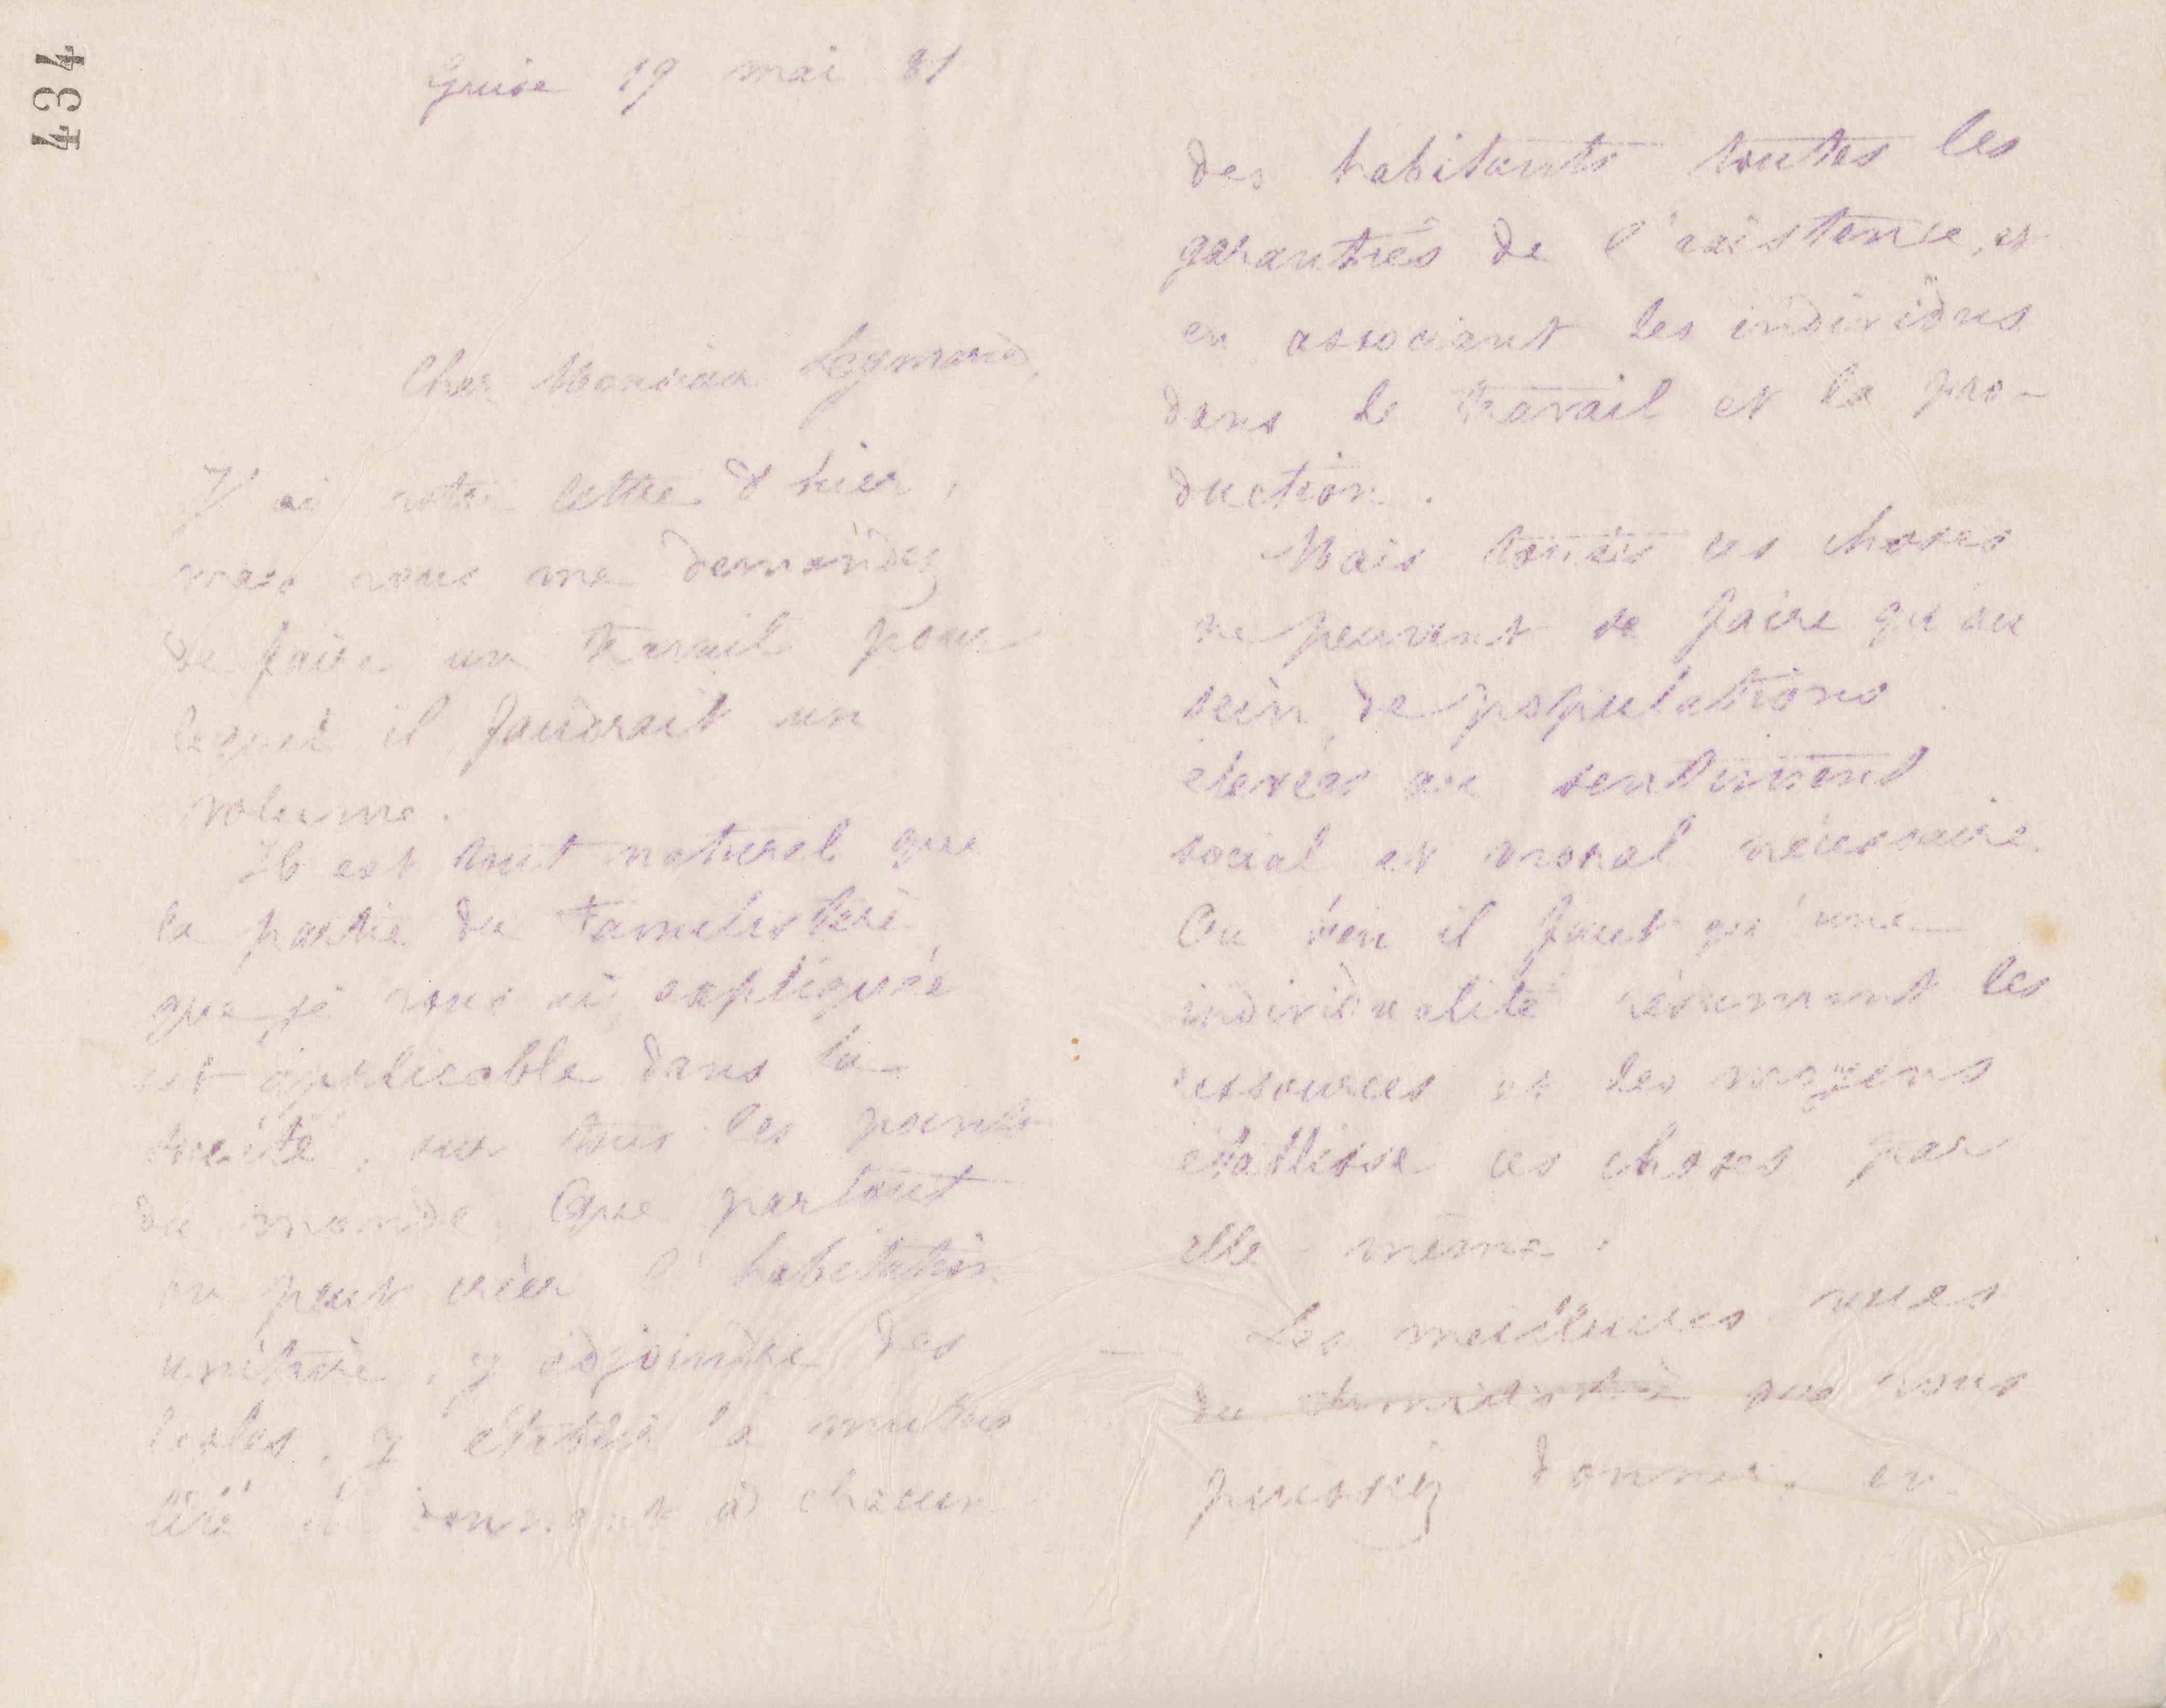 434
Guise 19 mai 81
Cher Monsieur Leymarie,
J'ai votre lettre d'hier,
mais vous me demandez
de faire un travail pour
lequel il faudrait un
volume.
Il est tout naturel que
la partie du Familistère
que je vous ai expliquée
est applicable dans la
société, sur tous les points
du monde. Que partout
on peut créer l'habitation
unitaire, y adjoindre des
écoles, y établir la mutua
lité en donnant à chacun
des habitants toutes les
garanties de l'existence, et
en associant les individus
dans le travail et la pro-
duction.
Mais toutes ces choses
ne peuvent se faire qu'au
sein de populations
élevées au sentiment
social et moral nécessaire.
Ou bien il faut qu'une
individualité résumant les
ressources et les moyens
établisse ces choses par
elle-même.
Les meilleures vues
du que vous
puissiez donner, en